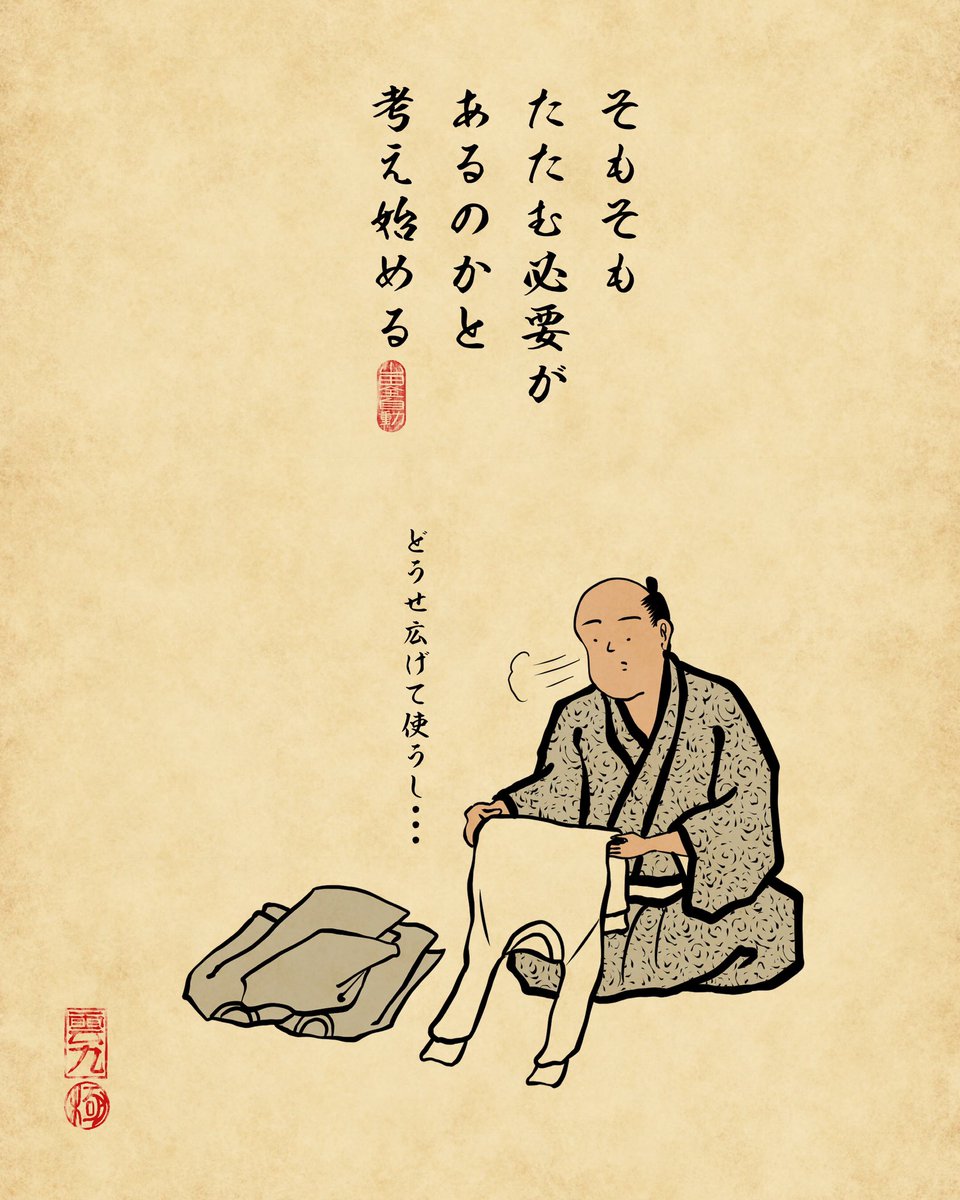 そもそも
たたむ必要が
あるのかと
考え始める
どうせ広げて使うし・・・
雲九
極